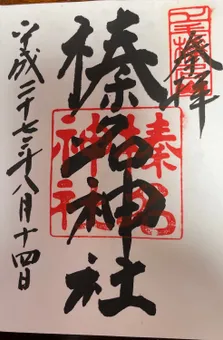 奉拝
榛名神社
榛名
神社
平成二十七年八月十四日